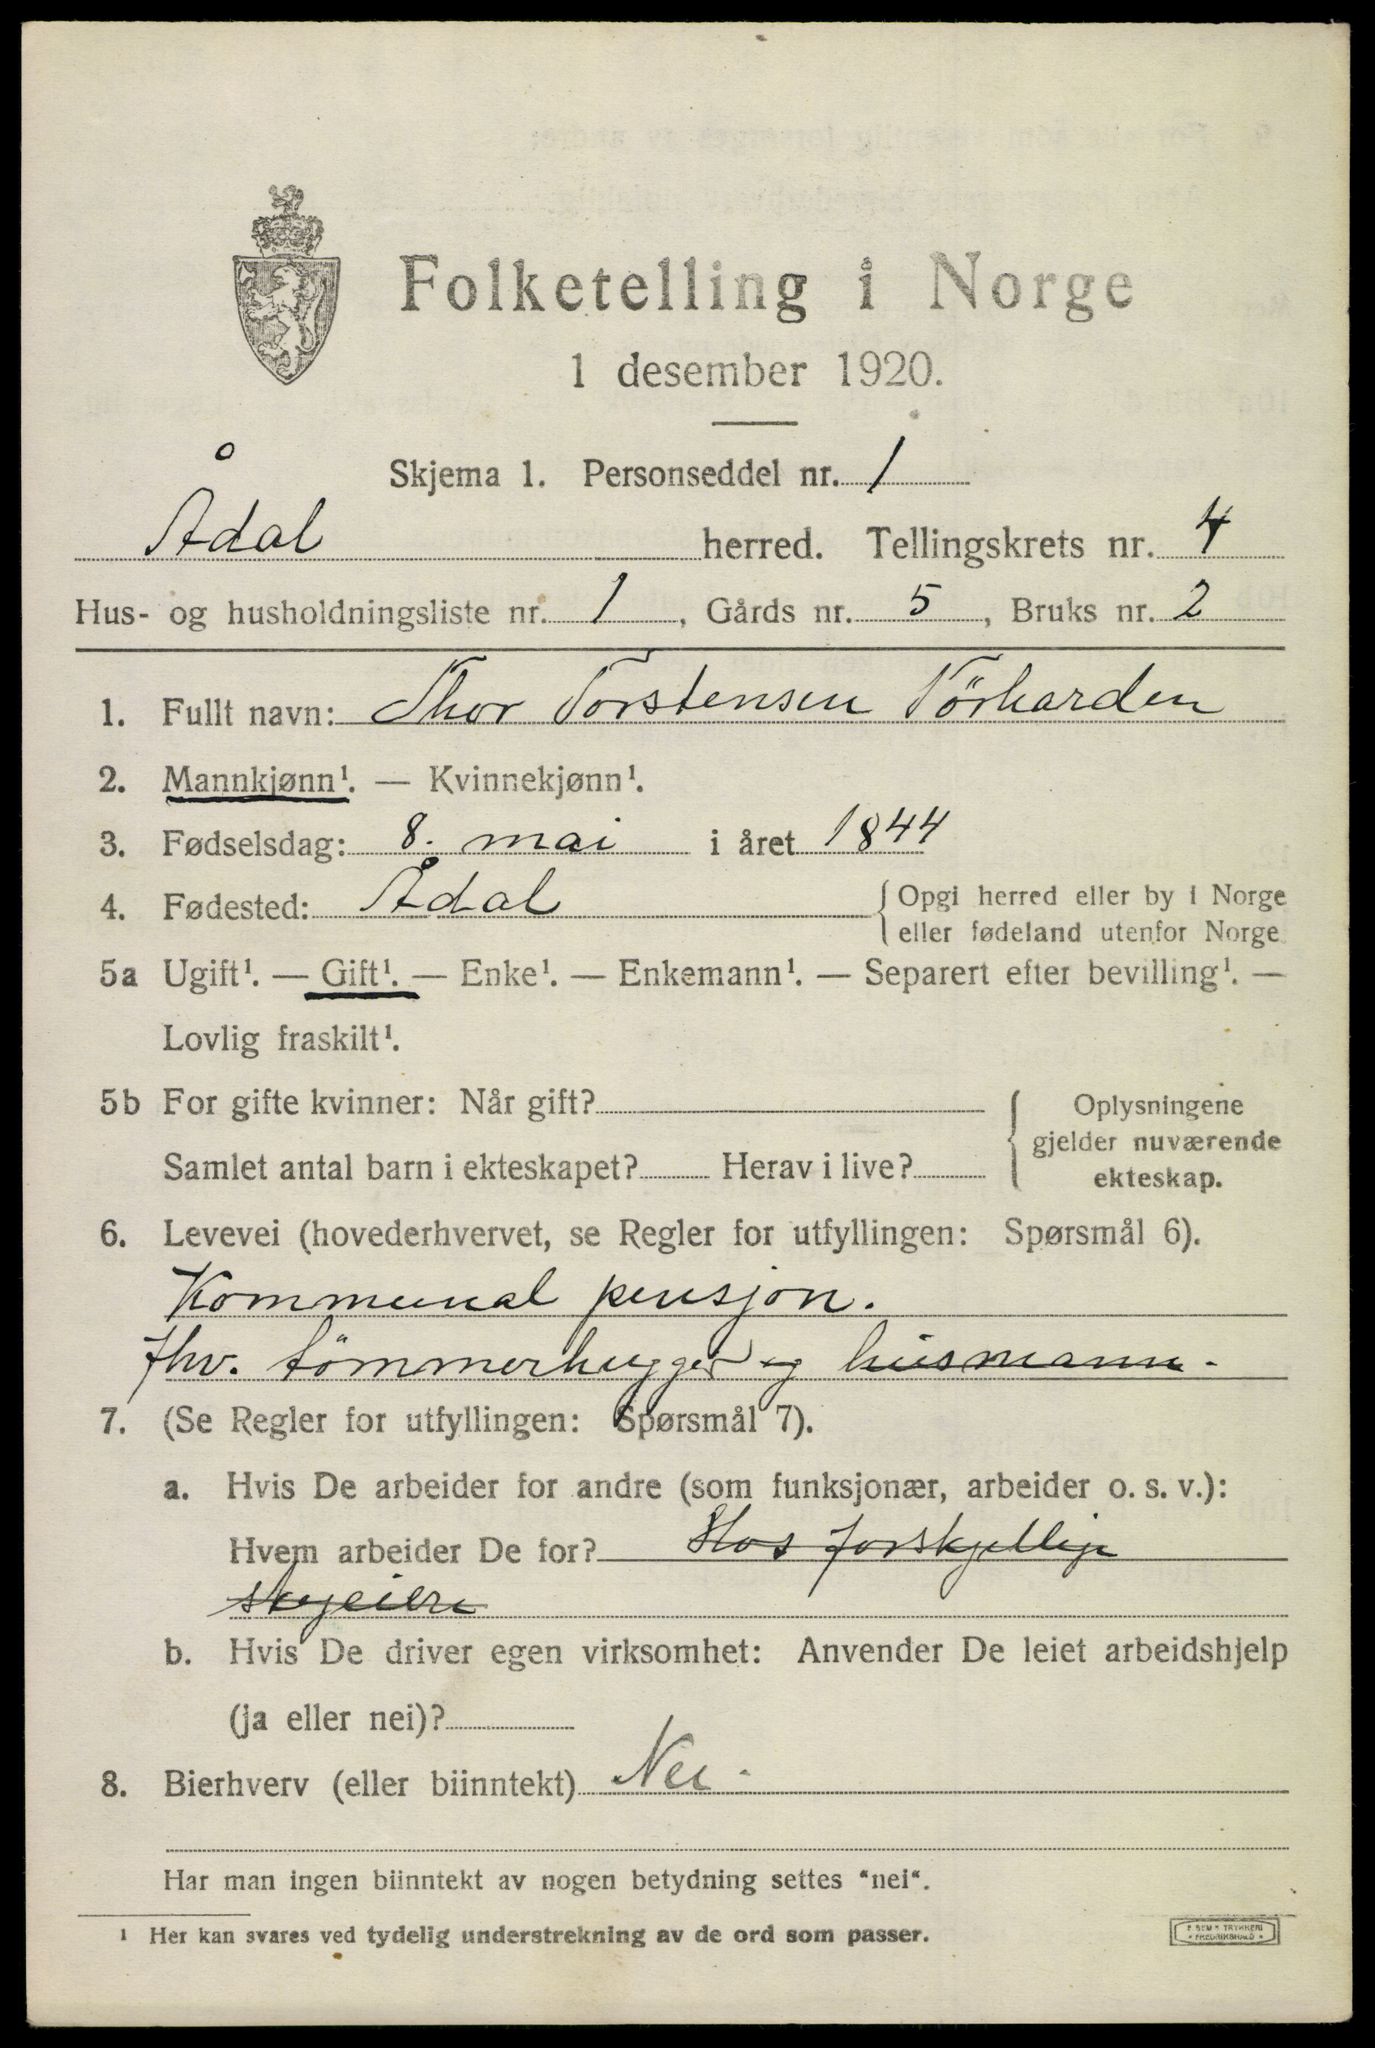 Folketelling i Norge
1 desember 1920.
Skjema 1. Personseddel nr. 1
Ådal herred. Tellingskrets nr. 4
Hus- og husholdningsliste nr. 1, Gårds nr. 5, Bruks nr. 2
1. Fullt navn: Thor Torstensen Törharden
2. Mannkjønn¹. — Kvinnekjønn¹.
3. Fødselsdag: 8. mai i året 1844
4. Fødested: Ådal {Opgi herred eller by i Norge
eller fødeland utenfor Norge
5a Ugift¹. — Gift¹. — Enke¹. — Enkemann¹. — Separert efter bevilling¹. —
Lovlig fraskilt¹.
5b For gifte kvinner: Når gift?
Samlet antal barn i ekteskapet? Herav i live?
{Oplysningene
gjelder nuværende
ekteskap.
6. Levevei (hovederhvervet, se Regler for utfyllingen: Spørsmål 6).
Kommunal pensjon.
fhv. tömmerhugger og husmann.
7. (Se Regler for utfyllingen: Spørsmål 7).
a. Hvis De arbeider for andre (som funksjonær, arbeider o. s. v.):
Hvem arbeider De for? Hos forskjellige
skogeiere
b. Hvis De driver egen virksomhet: Anvender De leiet arbeidshjelp
(ja eller nei)?
8. Bierhverv (eller biinntekt) Nei.
Har man ingen biinntekt av nogen betydning settes "nei".
¹ Her kan svares ved tydelig understrekning av de ord som passer.
TRYKKERI
FREDRIKSHALD